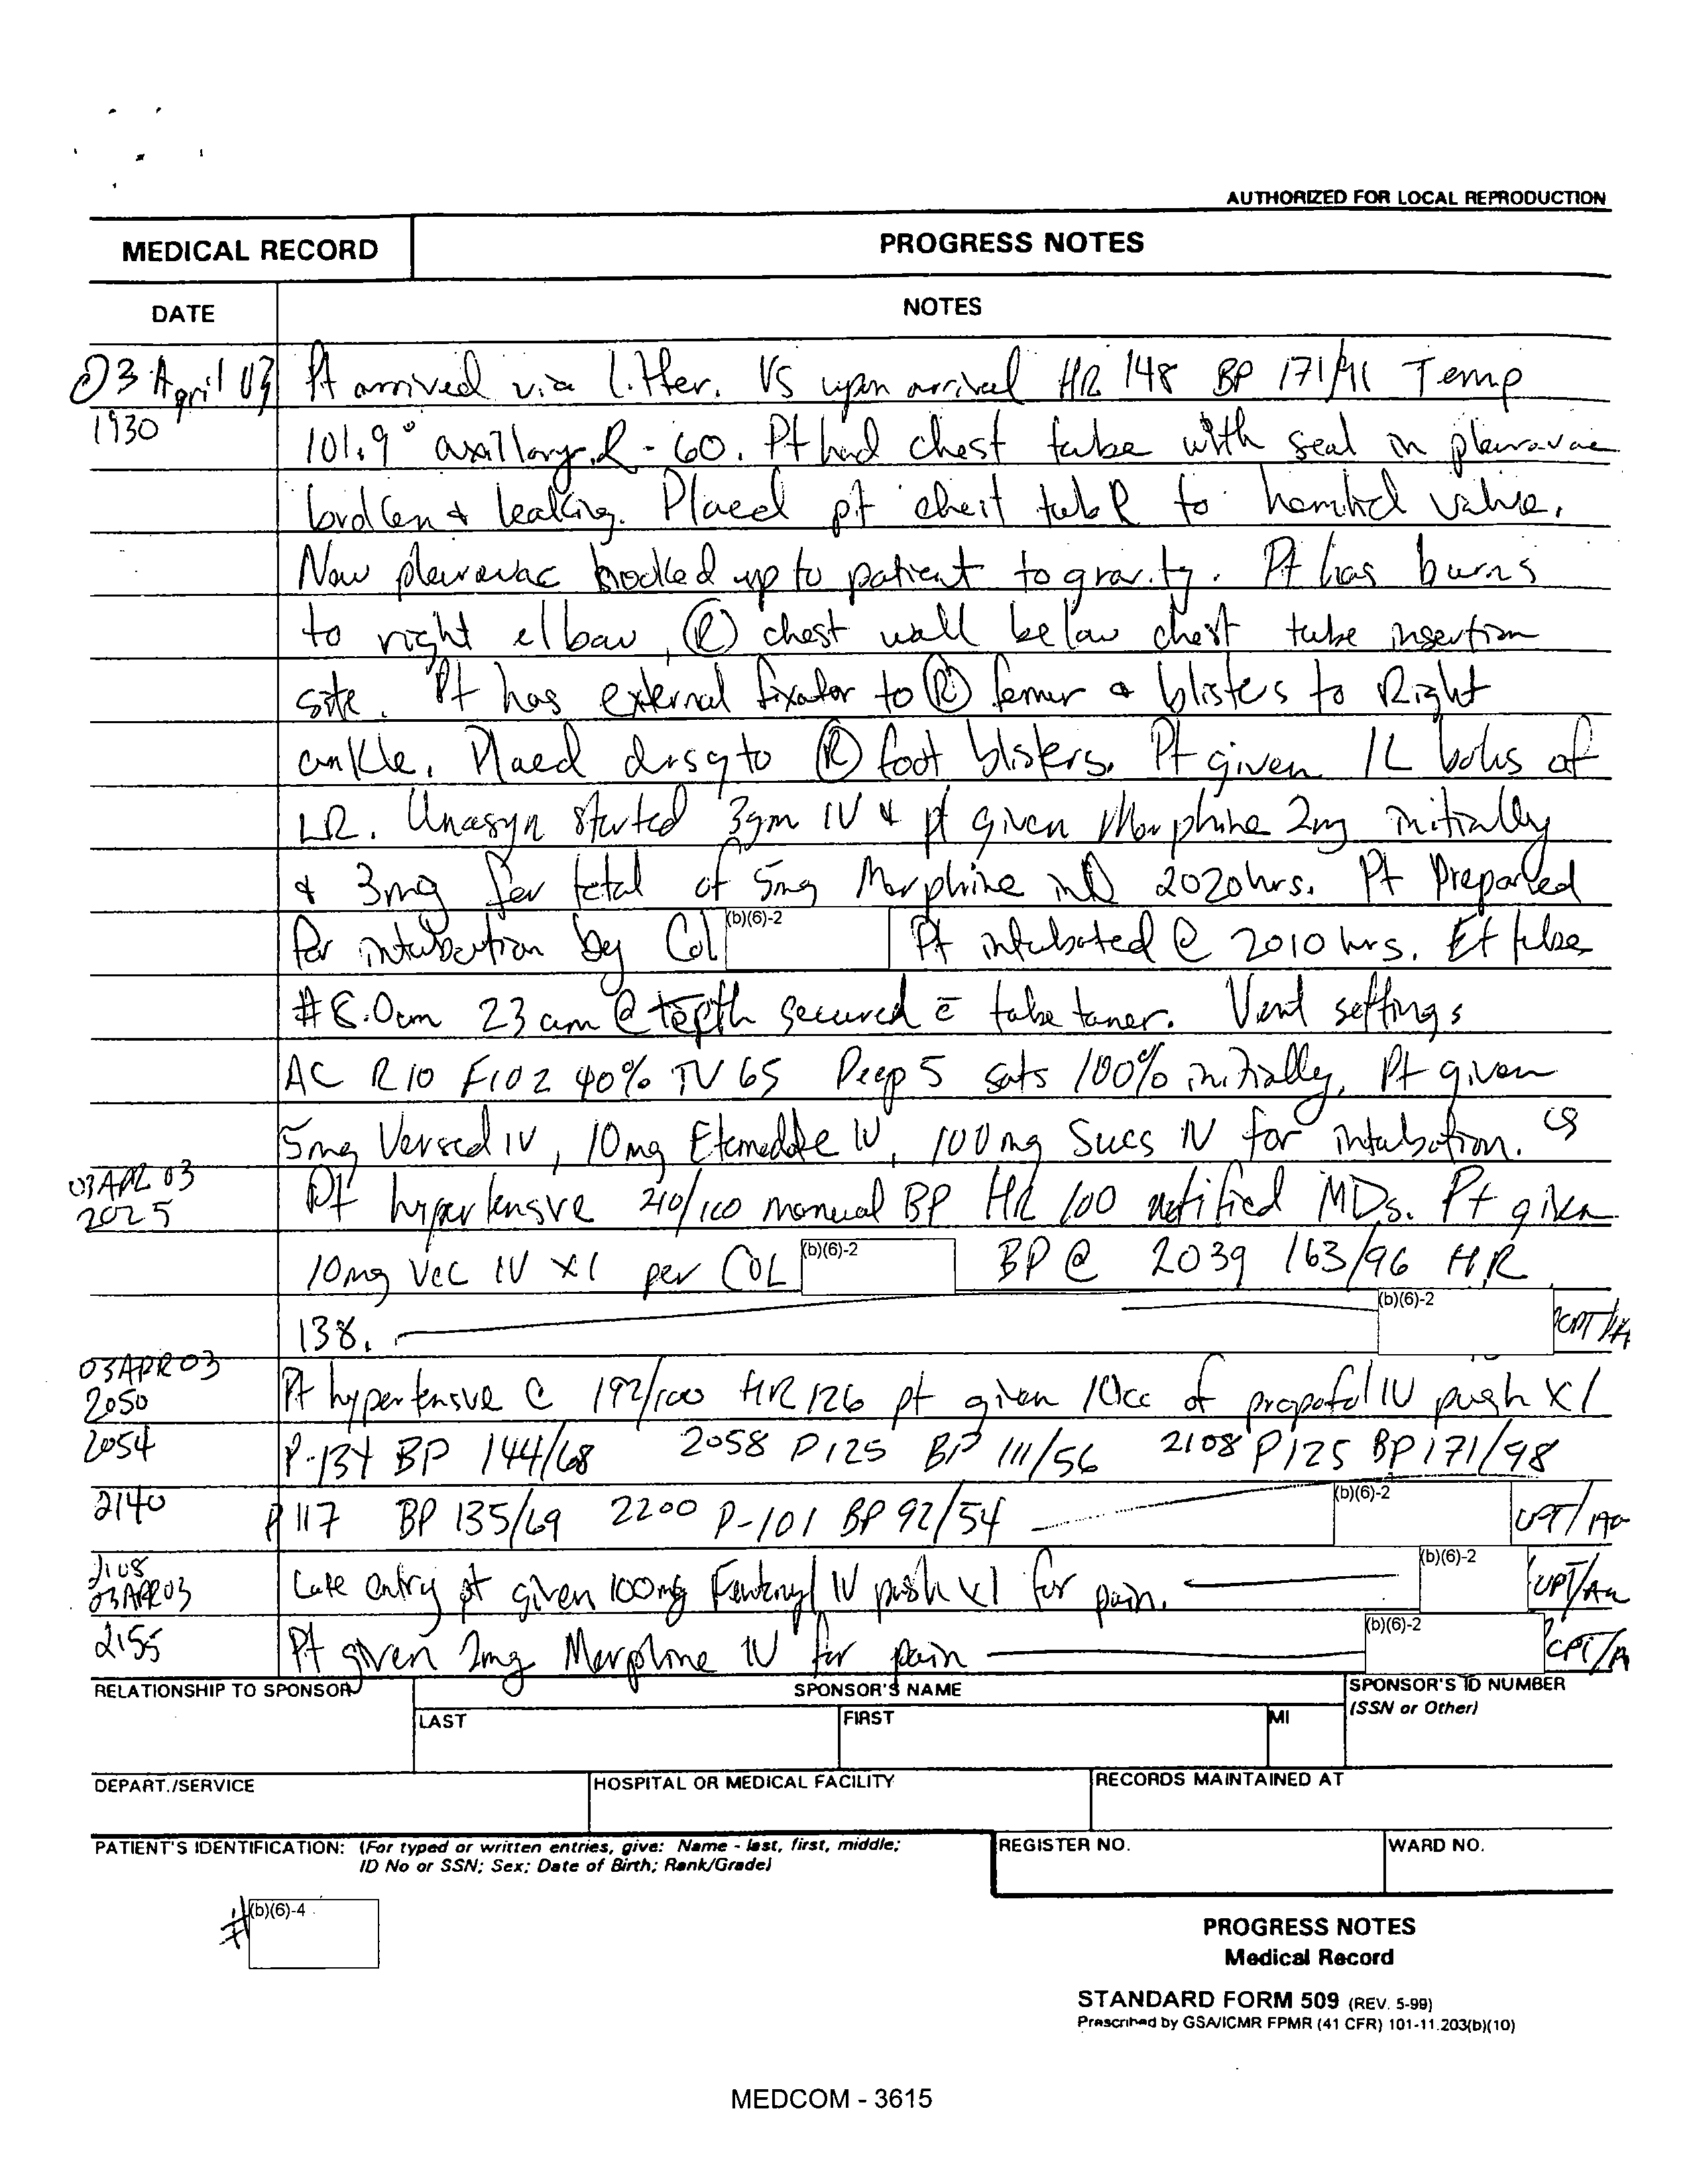 AUTHORIZED FOR LOCAL REPRODUCTION
MEDICAL RECORD PROGRESS NOTES
DATE NOTES
03 April 03 Pt arrived via litter. VS upon arrival HR 148 BP 171/91 Temp
1930 101.9° axillary. R - 60. Pt had chest tube with seal in pleuravac
& leaking. Placed pt chest tube to valve.
Now pleuravac hooked up to patient to gravity. Pt has burns
to right elbow, Ⓡ chest wall below chest tube insertion
site. Pt has external fixator to Ⓡ femur & blisters to Right
ankle. Placed drsg to Ⓡ foot blisters. Pt given 1L bolus of
LR. Unasyn started 3gm IV & pt given Morphine 2mg initially
& 3mg for total of 5mg Morphine 2020hrs. Pt Prepared
for intubation by Col (b)(6)-2 Pt intubated @ 2010 hrs. Et tube
#8.0cm 23 cm @ teeth secured c̄ tube tamer. Vent settings
AC R10 FIO2 40% TV 65 Peep 5 sats 100% initially. Pt given
5mg Versed IV, 10mg Etomedate IV, 100mg Sucs IV for intubation. CS
03 APR 03 Pt hypertensive 210/100 manual BP HR 100 notified MDs. Pt given
2025
10mg Vec IV X1 per COL (b)(6)-2 BP @ 2039 163/96 HR
138. (b)(6)-2 CPT/
03 APR 03 Pt hypertensive @ 192/100 HR 126 pt given 10cc of propofol IV push X1
2050
2054 P-134 BP 144/68 2058 P125 BP 111/56 2108 P125 BP 171/98
2140 P 117 BP 135/69 2200 P-101 BP 92/54 (b)(6)-2 CPT/An
2108 Late entry pt given 100mg Fentanyl IV push x1 for pain. (b)(6)-2 CPT/An
03APR03
2155 Pt given 2mg Morphine IV for pain (b)(6)-2 CPT/A
RELATIONSHIP TO SPONSOR SPONSOR'S NAME SPONSOR'S ID NUMBER
LAST FIRST MI (SSN or Other)
DEPART./SERVICE HOSPITAL OR MEDICAL FACILITY RECORDS MAINTAINED AT
PATIENT'S IDENTIFICATION: (For typed or written entries, give: Name - last, first, middle; REGISTER NO. WARD NO.
ID No or SSN; Sex; Date of Birth; Rank/Grade)
# (b)(6)-4
PROGRESS NOTES
Medical Record
STANDARD FORM 509 (REV. 5-99)
Prescribed by GSA/ICMR FPMR (41 CFR) 101-11.203(b)(10)
MEDCOM - 3615